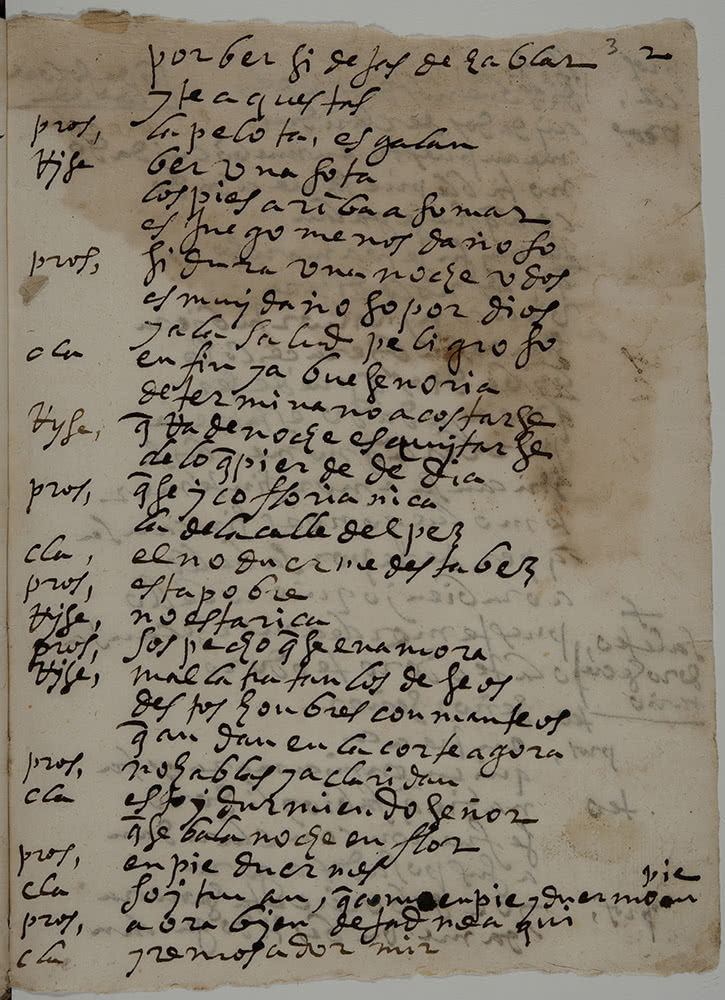 por ber si dejas de hablar 3 2
y te acuestas
pros, la pelota, es galan
tijse ber una sota
los pies ariba asomar
es juego menos dañoso
pros, si dura una noche v dos
es muy dañoso por dios
y a la salud peligroso
cla en fin ya bueseñoria
determina no acostarse
tijse, q̃ tia de noche es quitarse
de lo q̃ pierde de dia
pros, q̃ se yço florianica
la de la calle del pez
cla, el no duerme desta bez
pros, esta pobre
tijse, no esta rica
pros, sospecho q̃ se enamora
tijse, mal la tratan los deseos
destos honbres con manteos
q̃ andan en la corte agora
pros, no hablas ya claridan
cla estoy durmiendo señor
q̃ se ba la noche en flor
pros, en pie duermes
pie
cla soy truan, q̃ como en pie y duermo en
pros, aora bien dejadme aqui
cla yremos a dormir